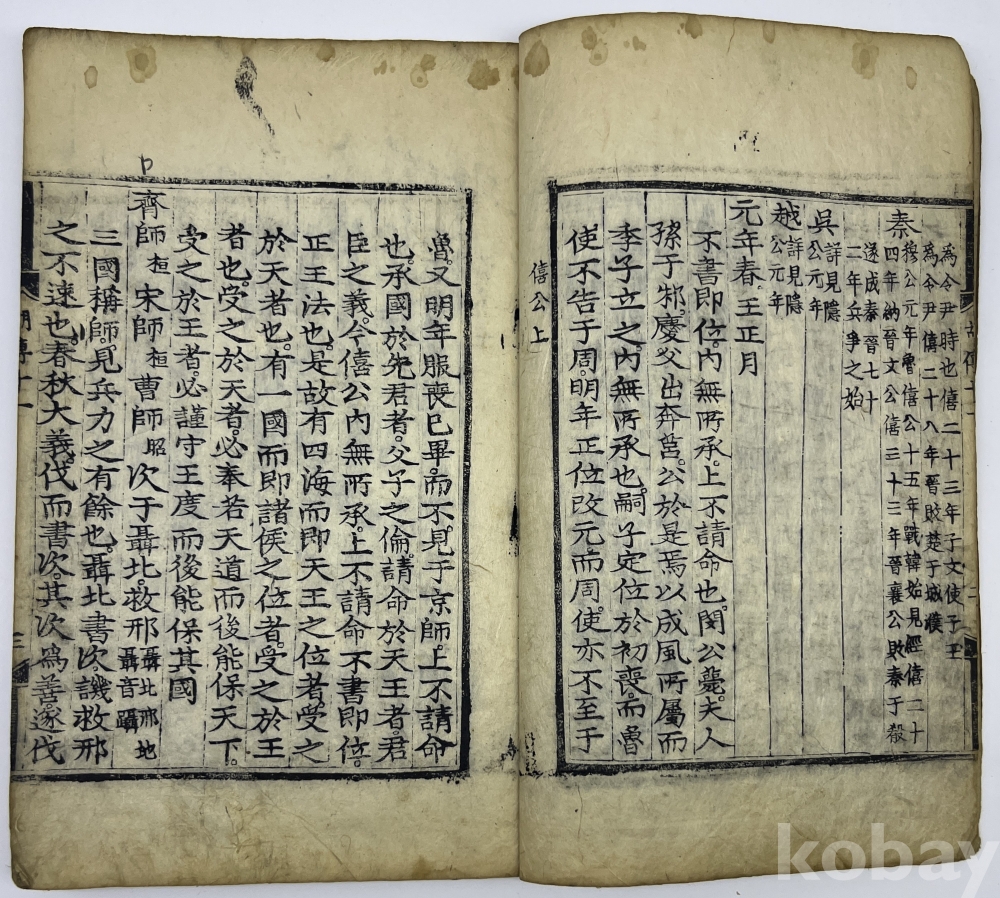 爲令尹時也僖二十三年子文使子玉
爲令尹僖二十八年晉敗楚于城濮
秦穆公元年魯僖公十五年戰韓始見經僖二十
四年納晉文公僖三十三年晉襄公敗秦于殽
遂成秦晉七十
二年兵爭之始
吳詳見隱
公元年
越詳見隱
公元年
元年春王正月
不書即位內無所承上不請命也閔公薨夫人
孫于邾慶父出奔莒公於是焉以成風所屬而
季子立之內無所承也嗣子定位於初喪而魯
使不告于周明年正位改元而周使亦不至于
僖公上
魯又明年服喪已畢而不見于京師上不請命
也承國於先君者父子之倫請命於天王者君
臣之義今僖公內無所承上不請命不書即位
正王法也是故有四海而即天王之位者受之
於天者也有一國而即諸侯之位者受之於王
者也受之於天者必奉若天道而後能保天下
受之於王者必謹守王度而後能保其國
齊師桓宋師桓曹師昭次于聶北救邢聶北邢地
聶音躡
三國稱師見兵力之有餘也聶北書次譏救邢
之不速也春秋大義伐而書次其次爲善遂伐
三
kobay